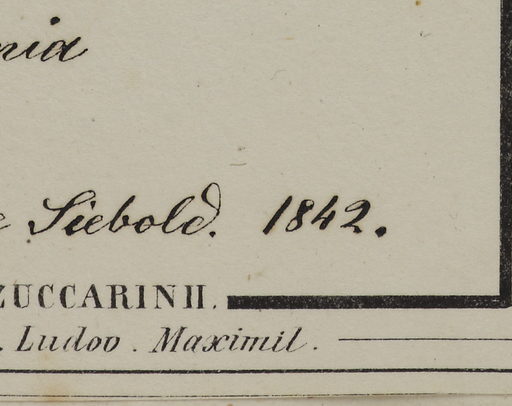 Siebold. 1842.
ZUCCARINII.
. Ludov. Maximil.